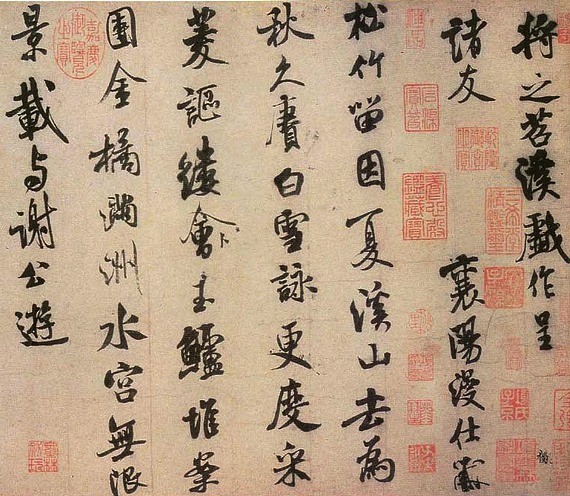 將之苕溪戲作呈
諸友　襄陽漫仕黻
松竹留因夏溪山去為
秋久賡白雪詠更度采
菱謳縷會玉鱸堆案
團金橘滿洲水宮無限
景載与謝公遊
嘉慶御覽之寶